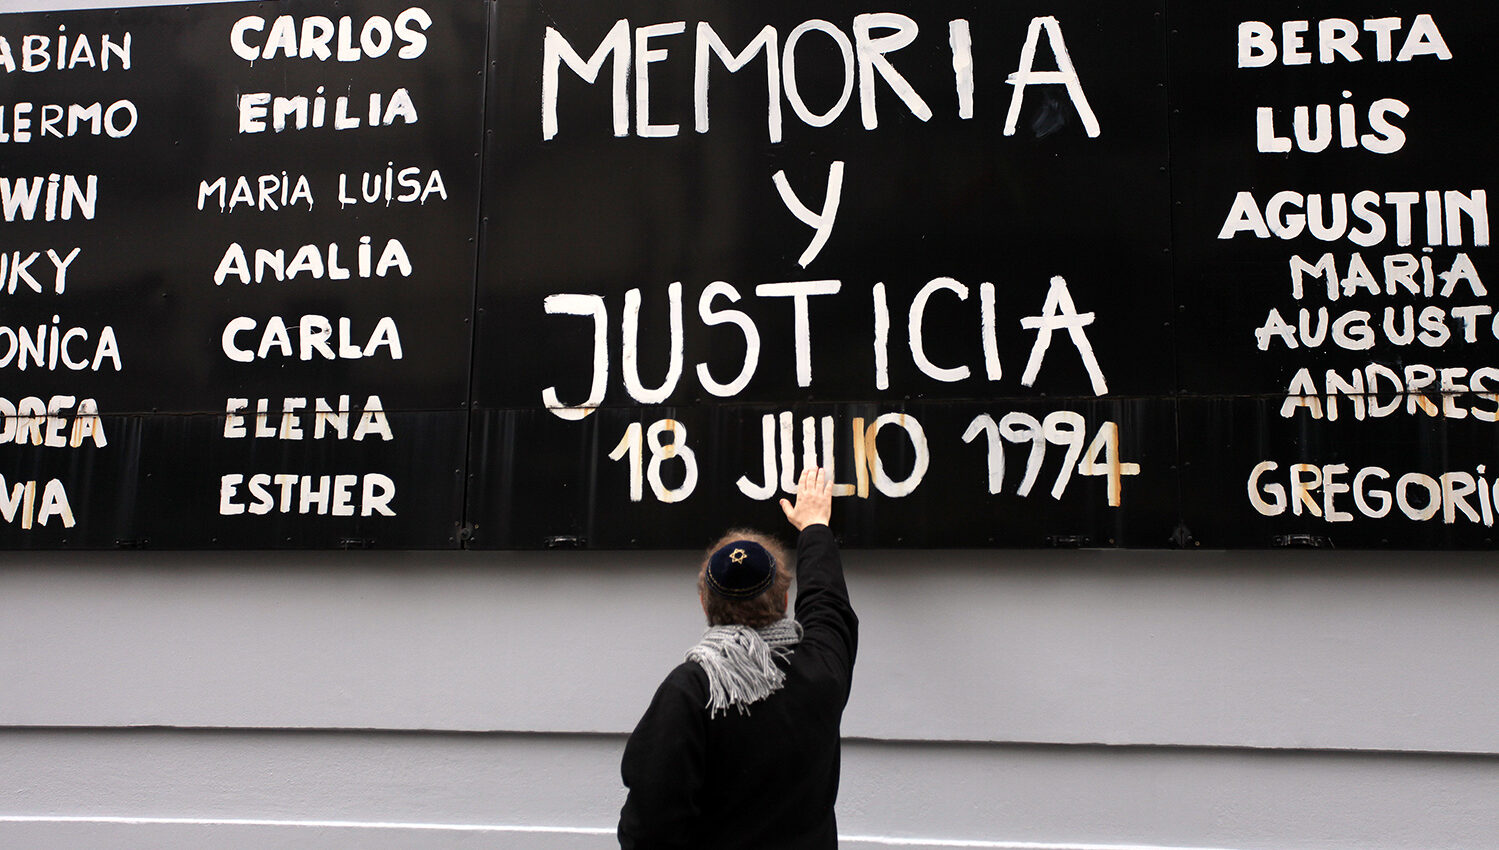 ABIAN
LERMO
WIN
UKY
ONICA
DREA
VIA
CARLOS
EMILIA
MARIA LUISA
ANALIA
CARLA
ELENA
ESTHER
MEMORIA
Y
JUSTICIA
18 JULIO 1994
BERTA
LUIS
AGUSTIN
MARIA
AUGUSTO
ANDRES
GREGORIO